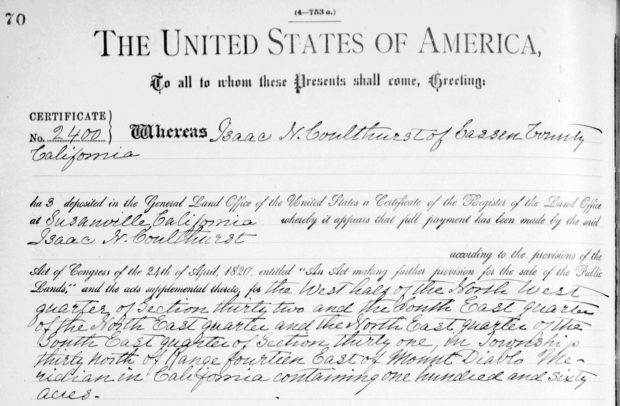 70
(4—753 a.)
THE UNITED STATES OF AMERICA,
To all to whom these Presents shall come, Greeting:
CERTIFICATE
No. 2400 } Whereas Isaac N. Coulthurst of Lassen County
California
has deposited in the General Land Office of the United States a Certificate of the Register of the Land Office
at Susanville California whereby it appears that full payment has been made by the said
Isaac N. Coulthurst
according to the provisions of the
Act of Congress of the 24th of April, 1820, entitled "An Act making further provision for the sale of the Public
Lands," and the acts supplemental thereto, for the West half of the North West
quarter of Section thirty two and the South East quarter
of the North East quarter and the North East quarter of the
South East quarter of Section thirty one, in Township
thirty north of Range fourteen East of Mount Diablo Me-
ridian in California containing one hundred and sixty
acres.